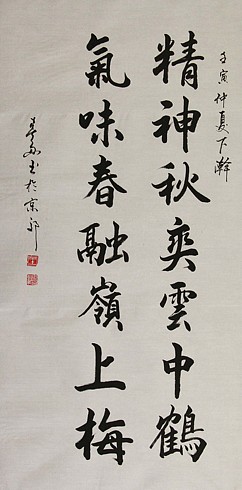 壬寅仲夏下澣
精神秋奕雲中鶴
氣味春融嶺上梅
書於京郊